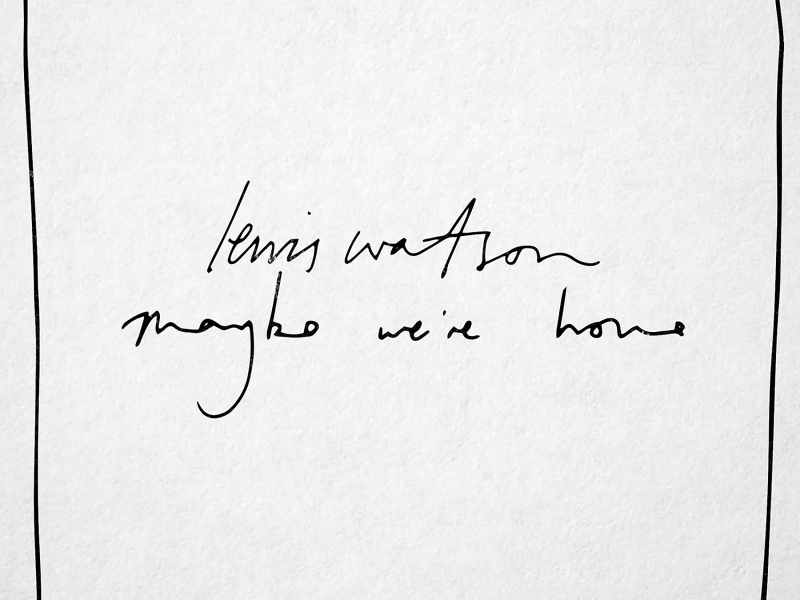 lewis watson
maybe we're home